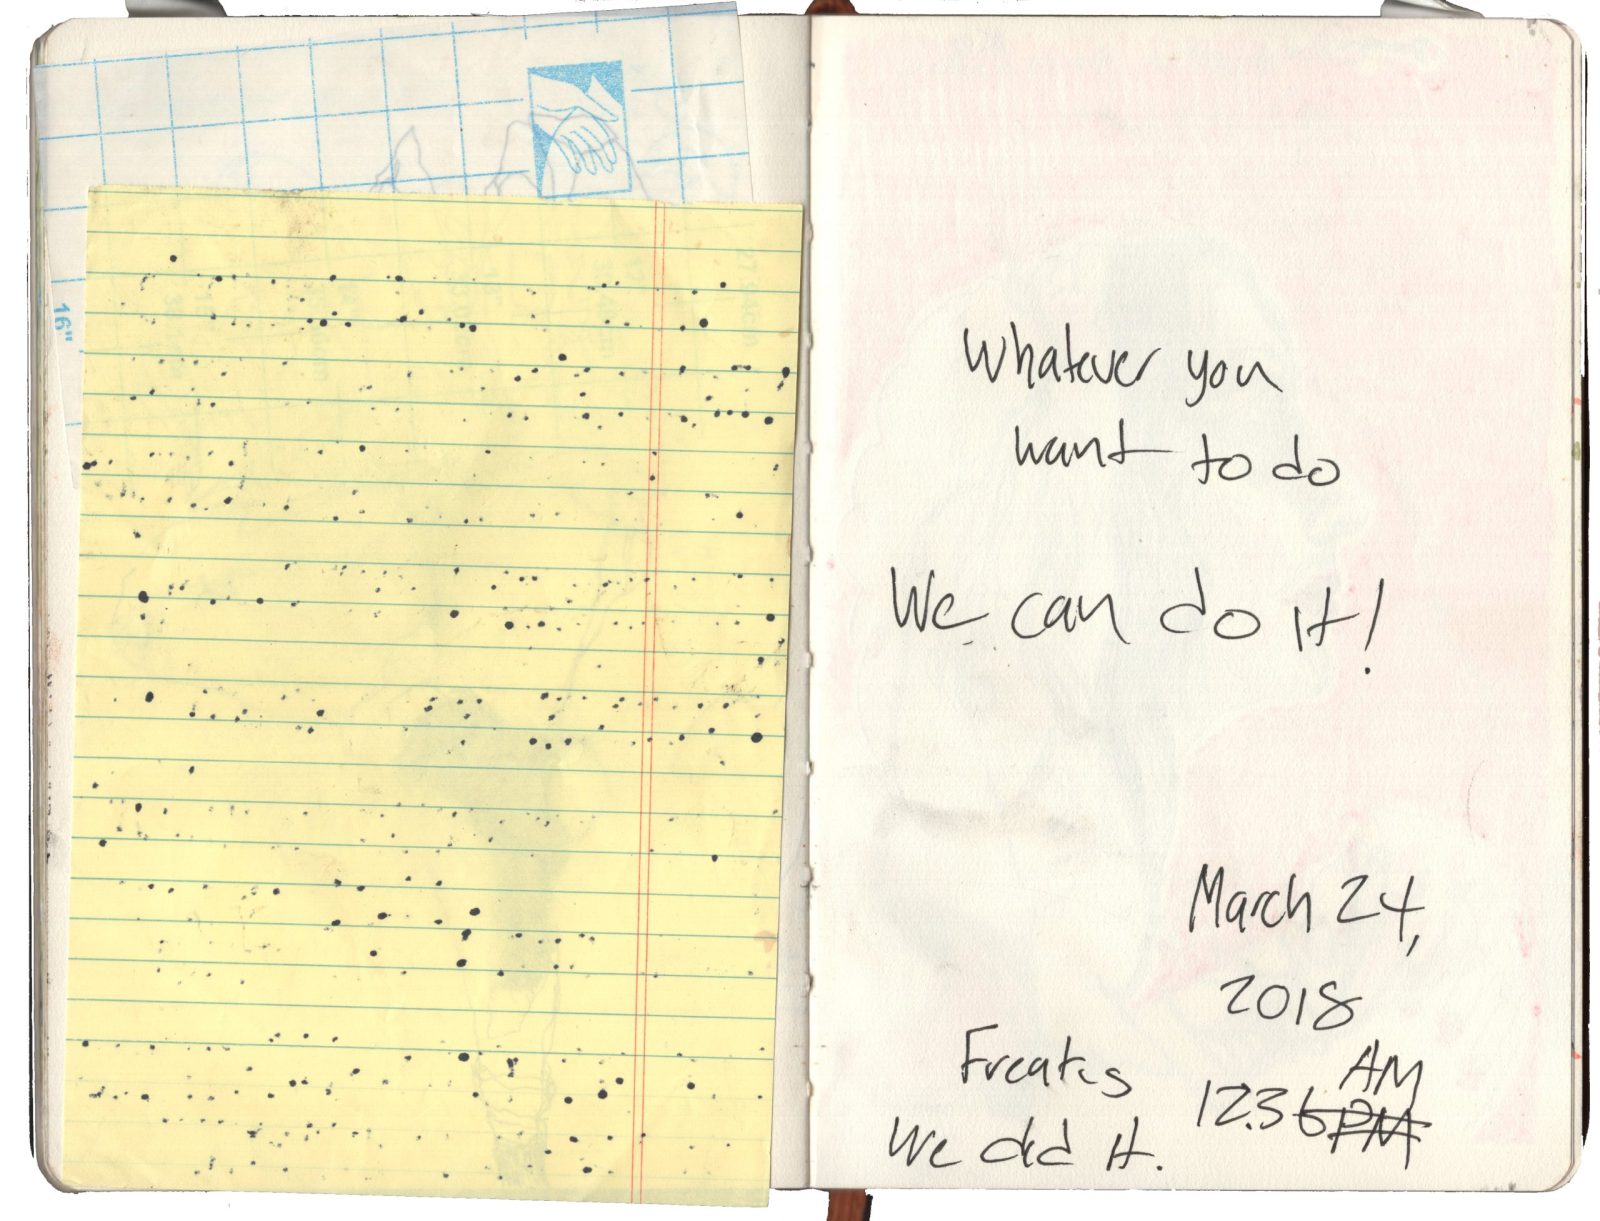 16"
Whatever you
want to do
We can do it!
March 24,
2018
AM
12.36 PM
Freaks
We did it.